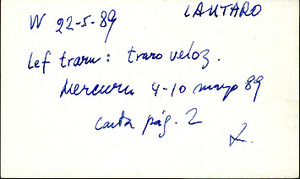 LAUTARO
W 22-5-89
Lef traru: traro veloz.
Mercurio 4-10 mayo 89
Carta pág. 2
L.